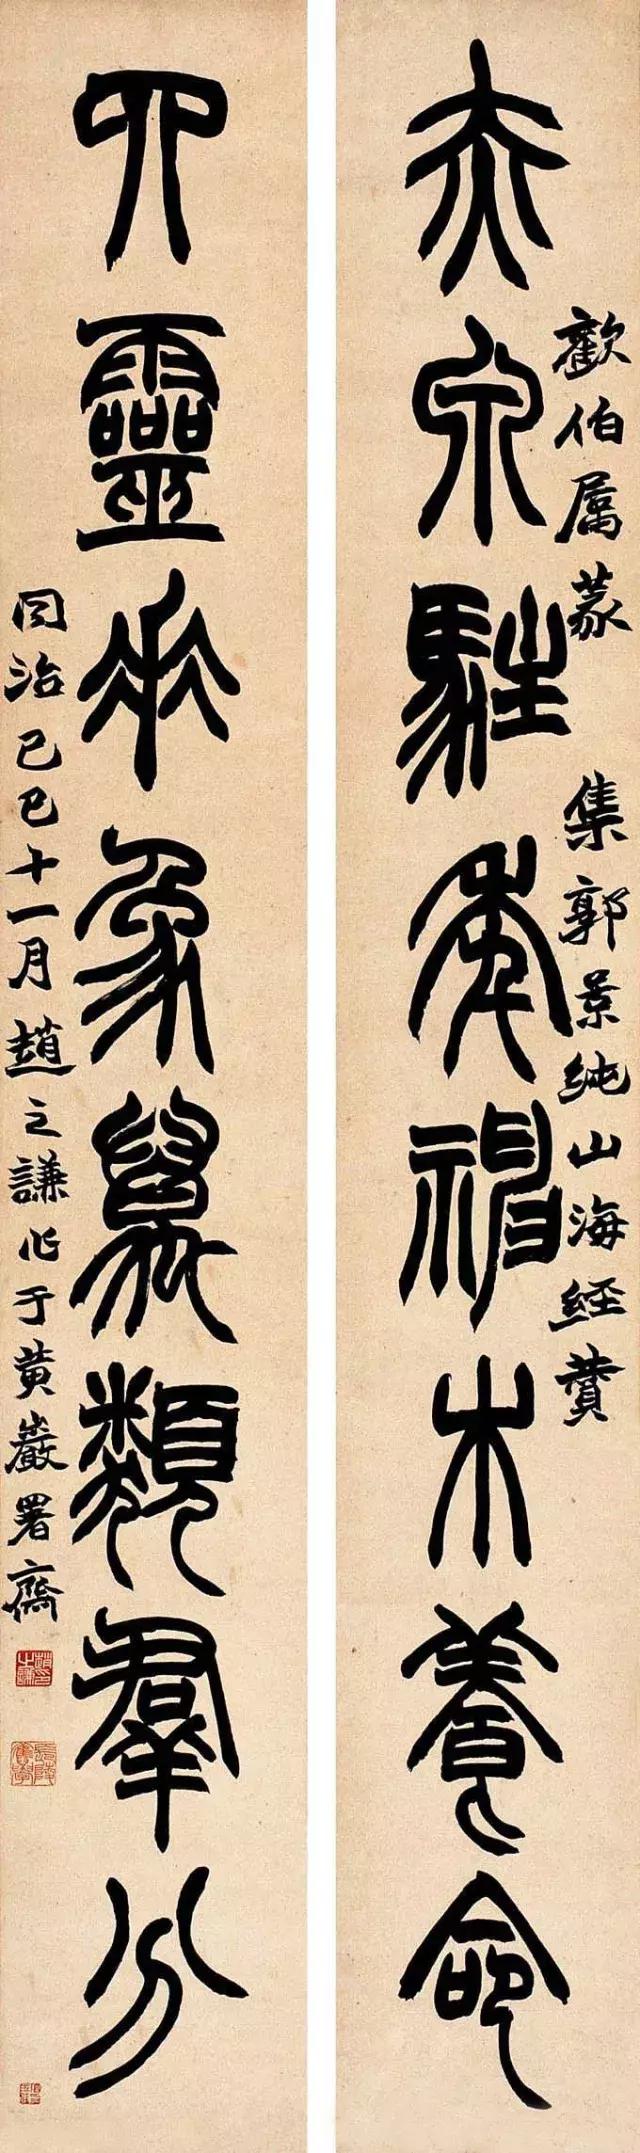 歡伯屬篆 集郭景純山海經贊
赤泉駐年神木養命
靈𠂹象萬類羣分
同治己巳十一月趙之謙作于黃巖署齋
趙之謙印